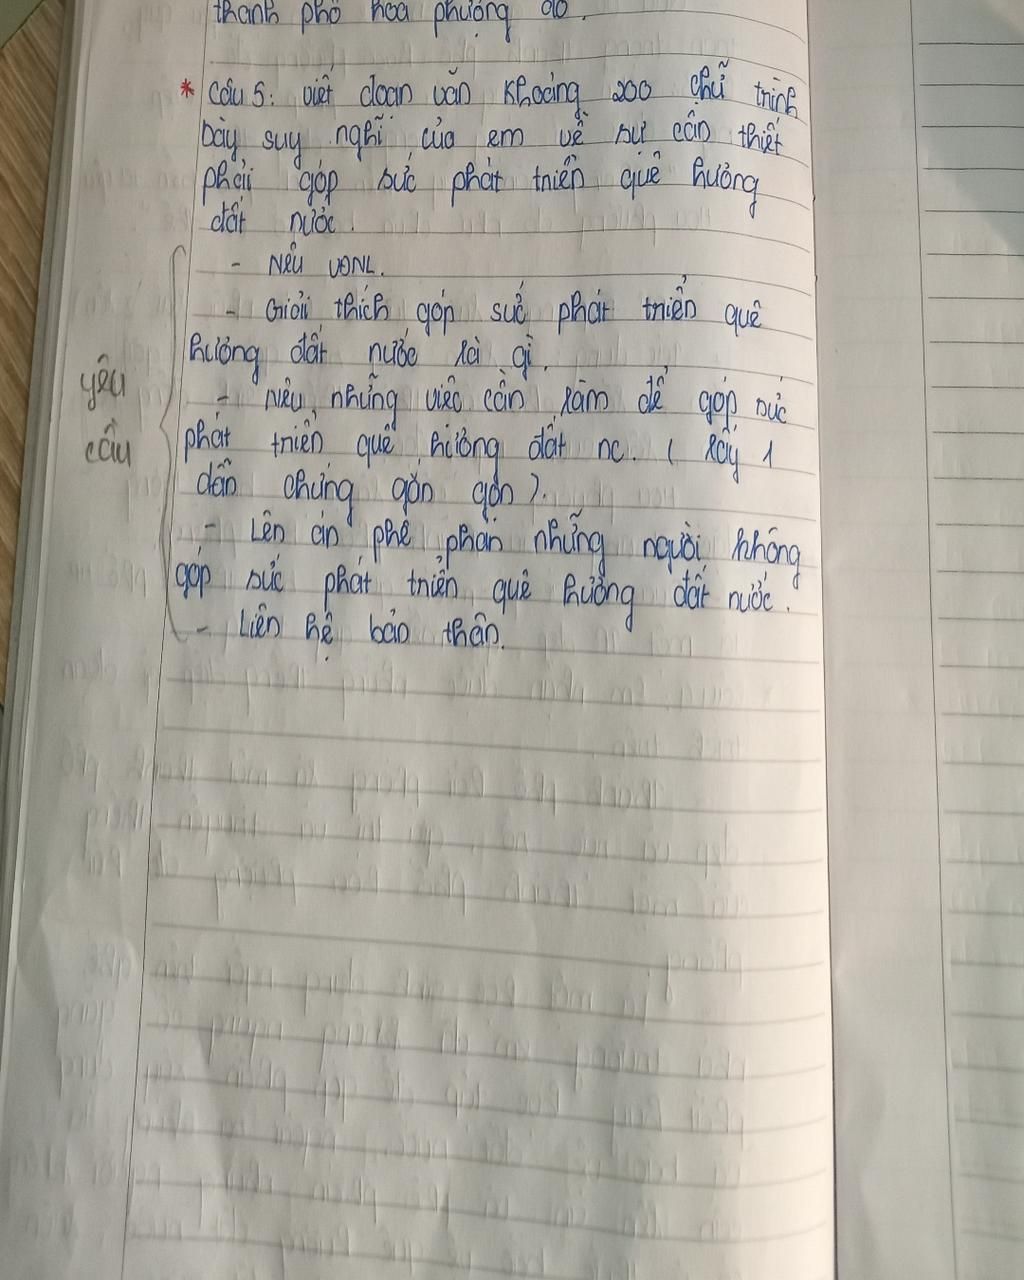 thành phố hoa phượng đỏ.
* Câu 5: viết đoạn văn khoảng 200 chữ trình
bày suy nghĩ của em về sự cần thiết
phải góp sức phát triển quê hương
đất nước.
- Nêu VĐNL.
- Giải thích góp sức phát triển quê
hương đất nước là gì.
- Nêu những việc cần làm để góp sức
phát triển quê hương đất nc. ( lấy 1
dẫn chứng gắn gọn ).
- Lên án phê phán những người không
góp sức phát triển quê hương đất nước.
- Liên hệ bản thân.
yêu
cầu